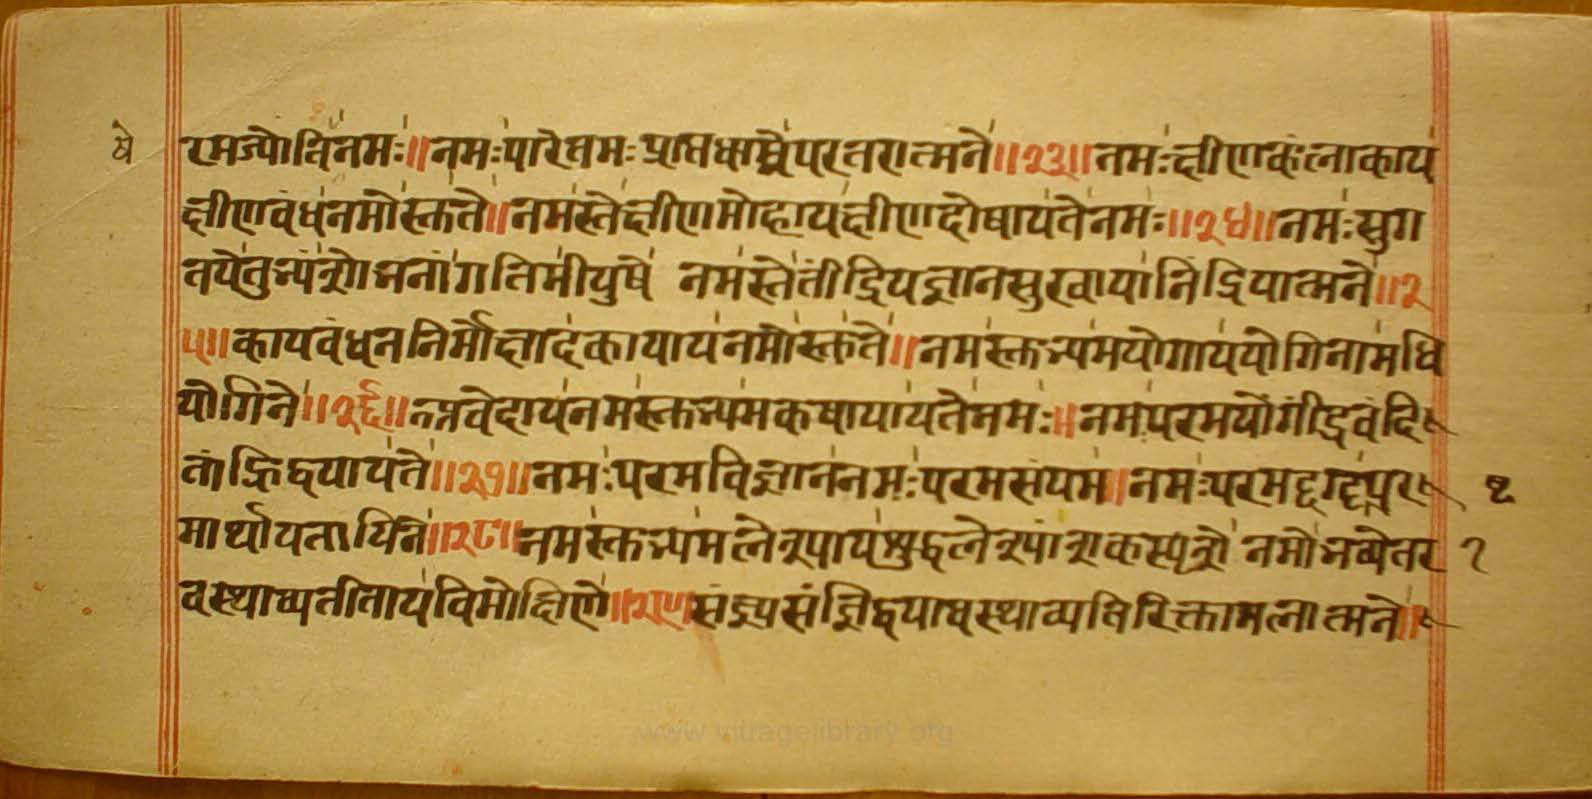 षे
रमज्योतिर्नमः॥नमःपारेतमःप्राप्तधाम्नेपरतरात्मने॥२३॥नमःक्षीणकलंकाय
क्षीणबंधनमोस्तुते॥नमस्तेक्षीणमोहायक्षीणदोषायतेनमः॥२४॥नमःसुग
तयेतुभ्यंशोभनांगतिमीयुषे नमस्तेतींद्रियज्ञानसुखायानिंद्रियात्मने॥२
५॥कायबंधननिर्मोक्षादकायायनमोस्तुते॥नमस्तुभ्यमयोगाययोगिनामधि
योगिने॥२६॥अवेदायनमस्तुभ्यमकषायायतेनमः॥नमःपरमयोगींद्रवंदि
तांह्रिद्वयायते॥२७॥नमःपरमविज्ञाननमःपरमसंयम॥नमःपरमदृग्दृष्टपर
मार्थायतायिने॥२८॥नमस्तुभ्यमलेश्यायशुद्धलेश्यांशकस्पृशे नमोभव्येतर
वस्थाव्यतीतायविमोक्षिणे॥२९॥संज्ञ्यसंज्ञिद्वयावस्थाव्यतिरिक्तामलात्मने॥
www.vitragelibrary.org